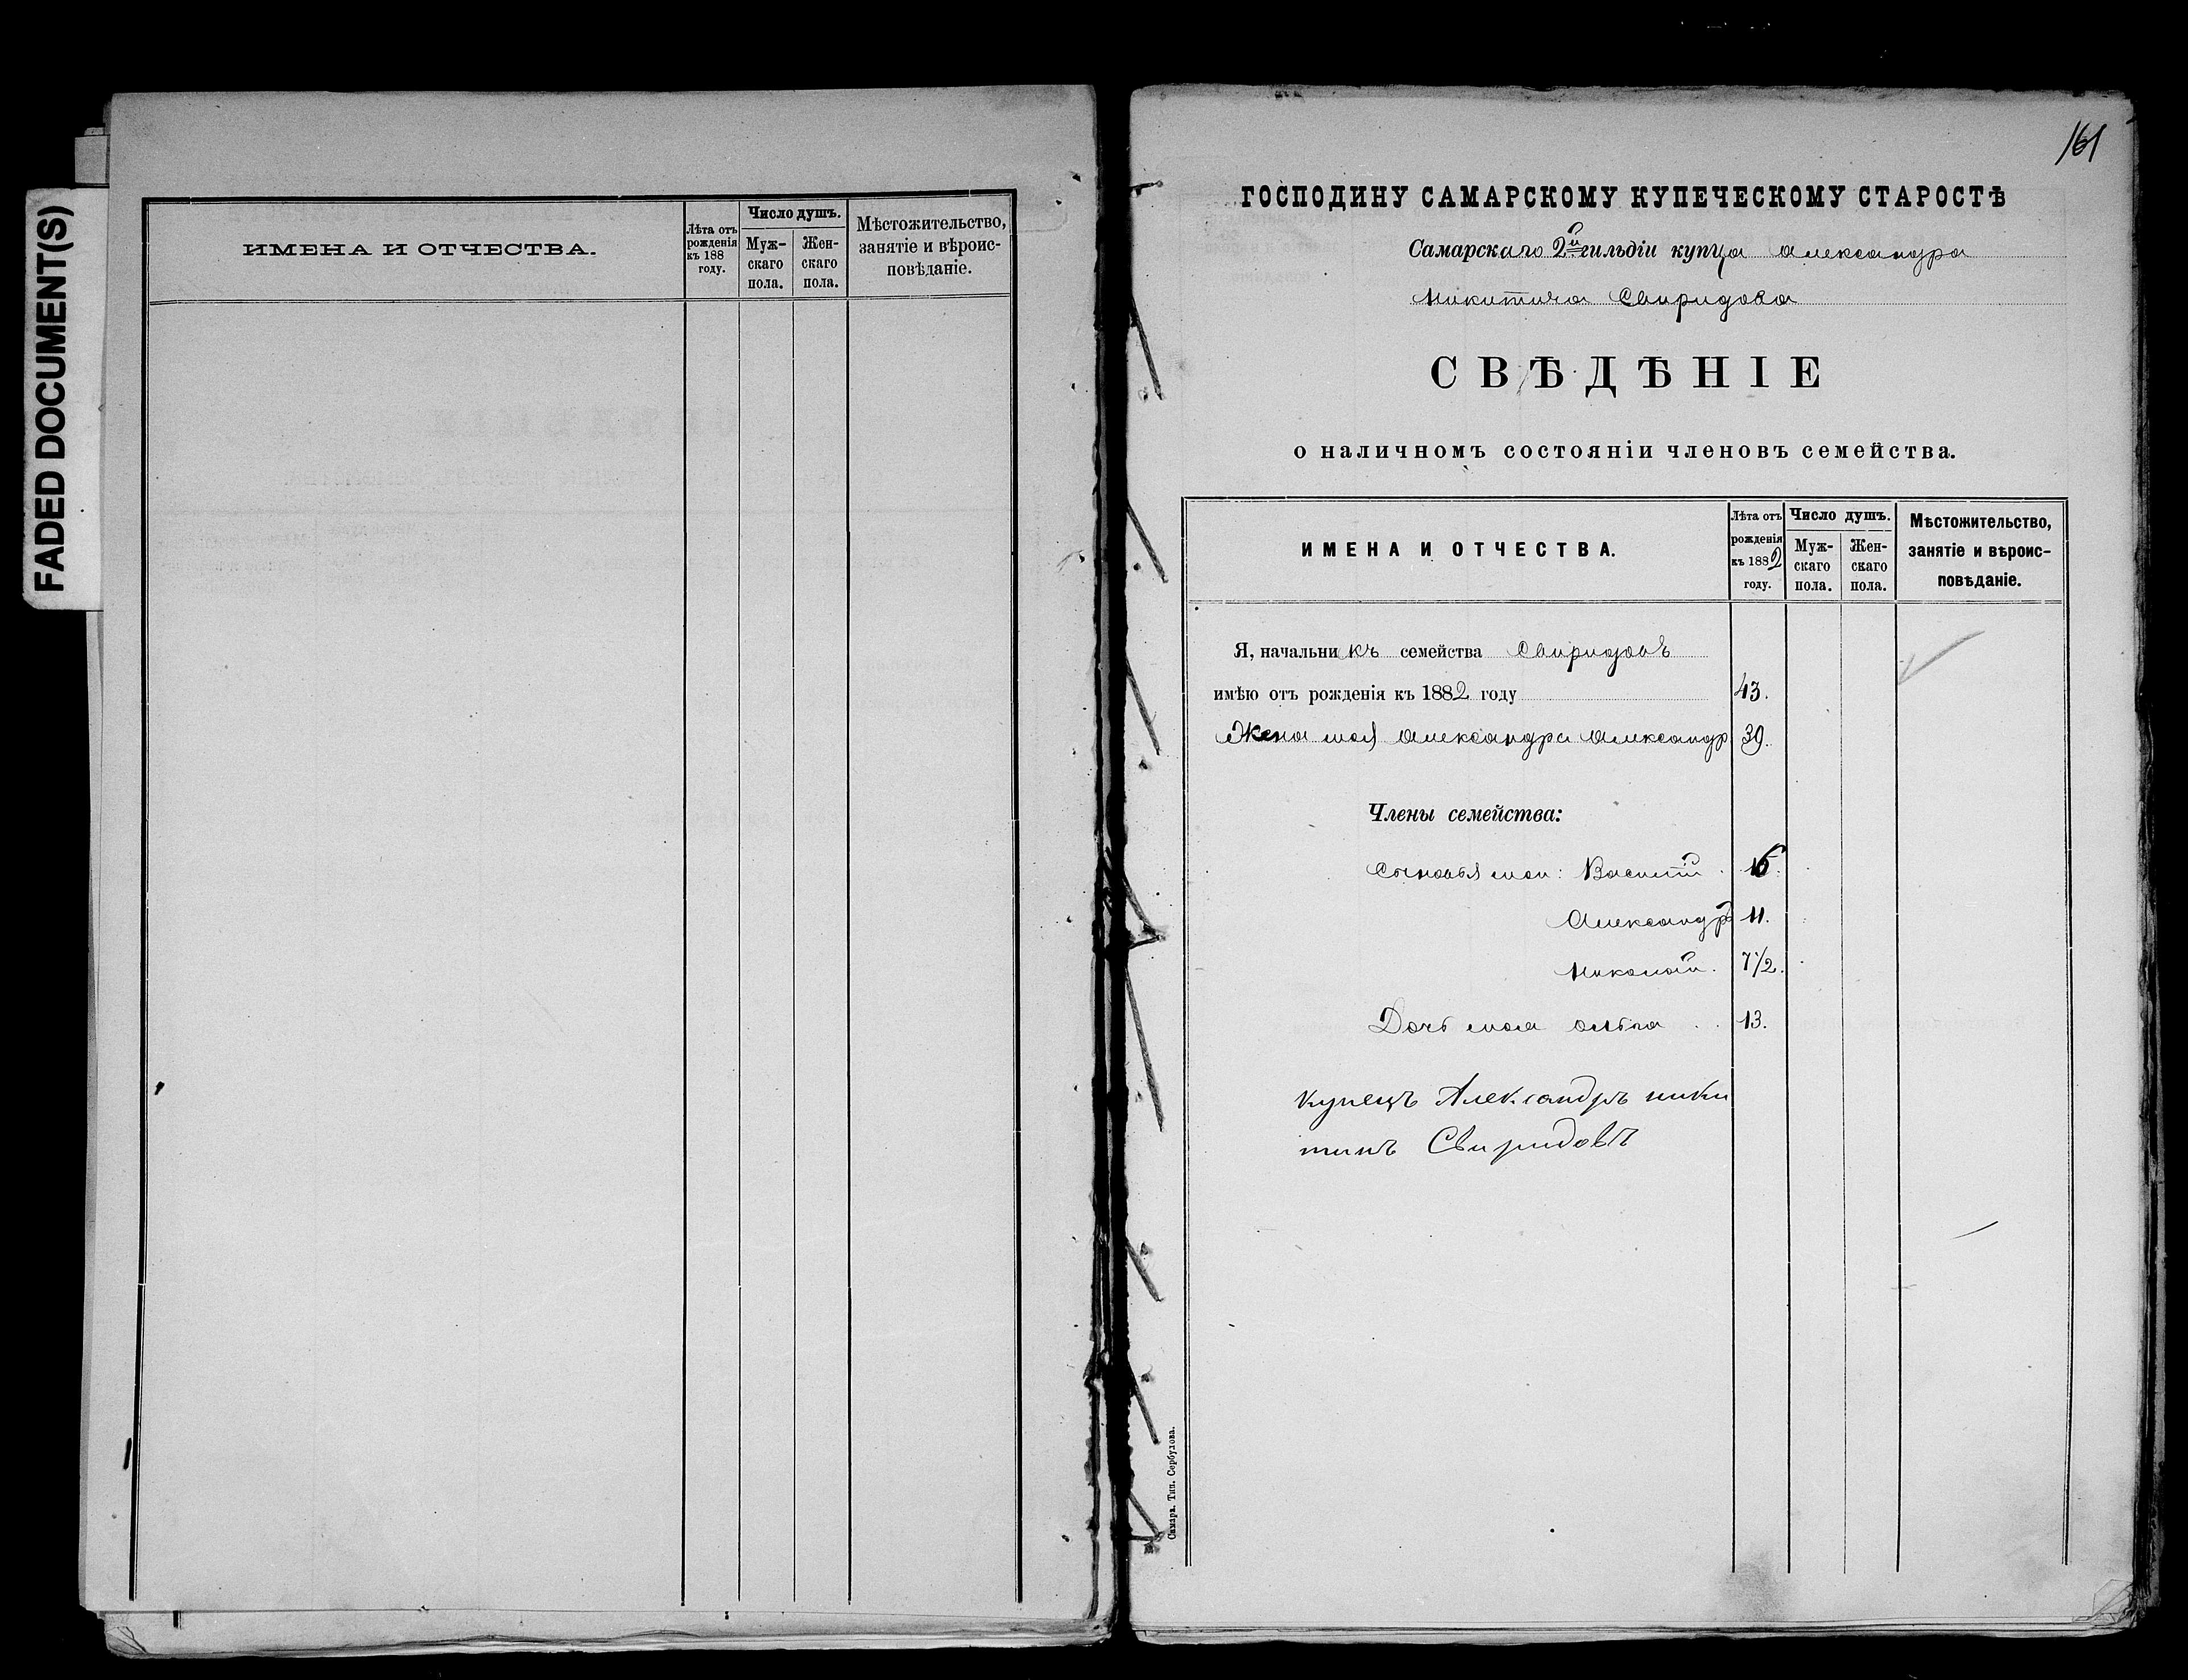 FADED DOCUMENT(S)
ИМЕНА И ОТЧЕСТВА.
Лѣта отъ рожденія къ 188 году.
Число душъ.
Мужскаго пола.
Женскаго пола.
Мѣстожительство, занятіе и вѣроисповѣданіе.
161
ГОСПОДИНУ САМАРСКОМУ КУПЕЧЕСКОМУ СТАРОСТѢ
Самарскаго 2й гильдіи купца Александра
Никитича Свиридова
СВѢДѢНІЕ
о наличномъ состояніи членовъ семейства.
ИМЕНА И ОТЧЕСТВА.
Лѣта отъ рожденія къ 1882 году.
Число душъ.
Мужскаго пола.
Женскаго пола.
Мѣстожительство, занятіе и вѣроисповѣданіе.
Я, начальникъ семейства Свиридовъ
имѣю отъ рожденія къ 1882 году 43.
Жена моя Александра Александр 39.
Члены семейства:
Сыновья мои: Василій . 15.
Александръ 11.
Николай. 7½.
Дочь моя Ольга . . 13.
купецъ Александръ ники
тинъ Свиридовъ
Самара. Тип. Сербулова.